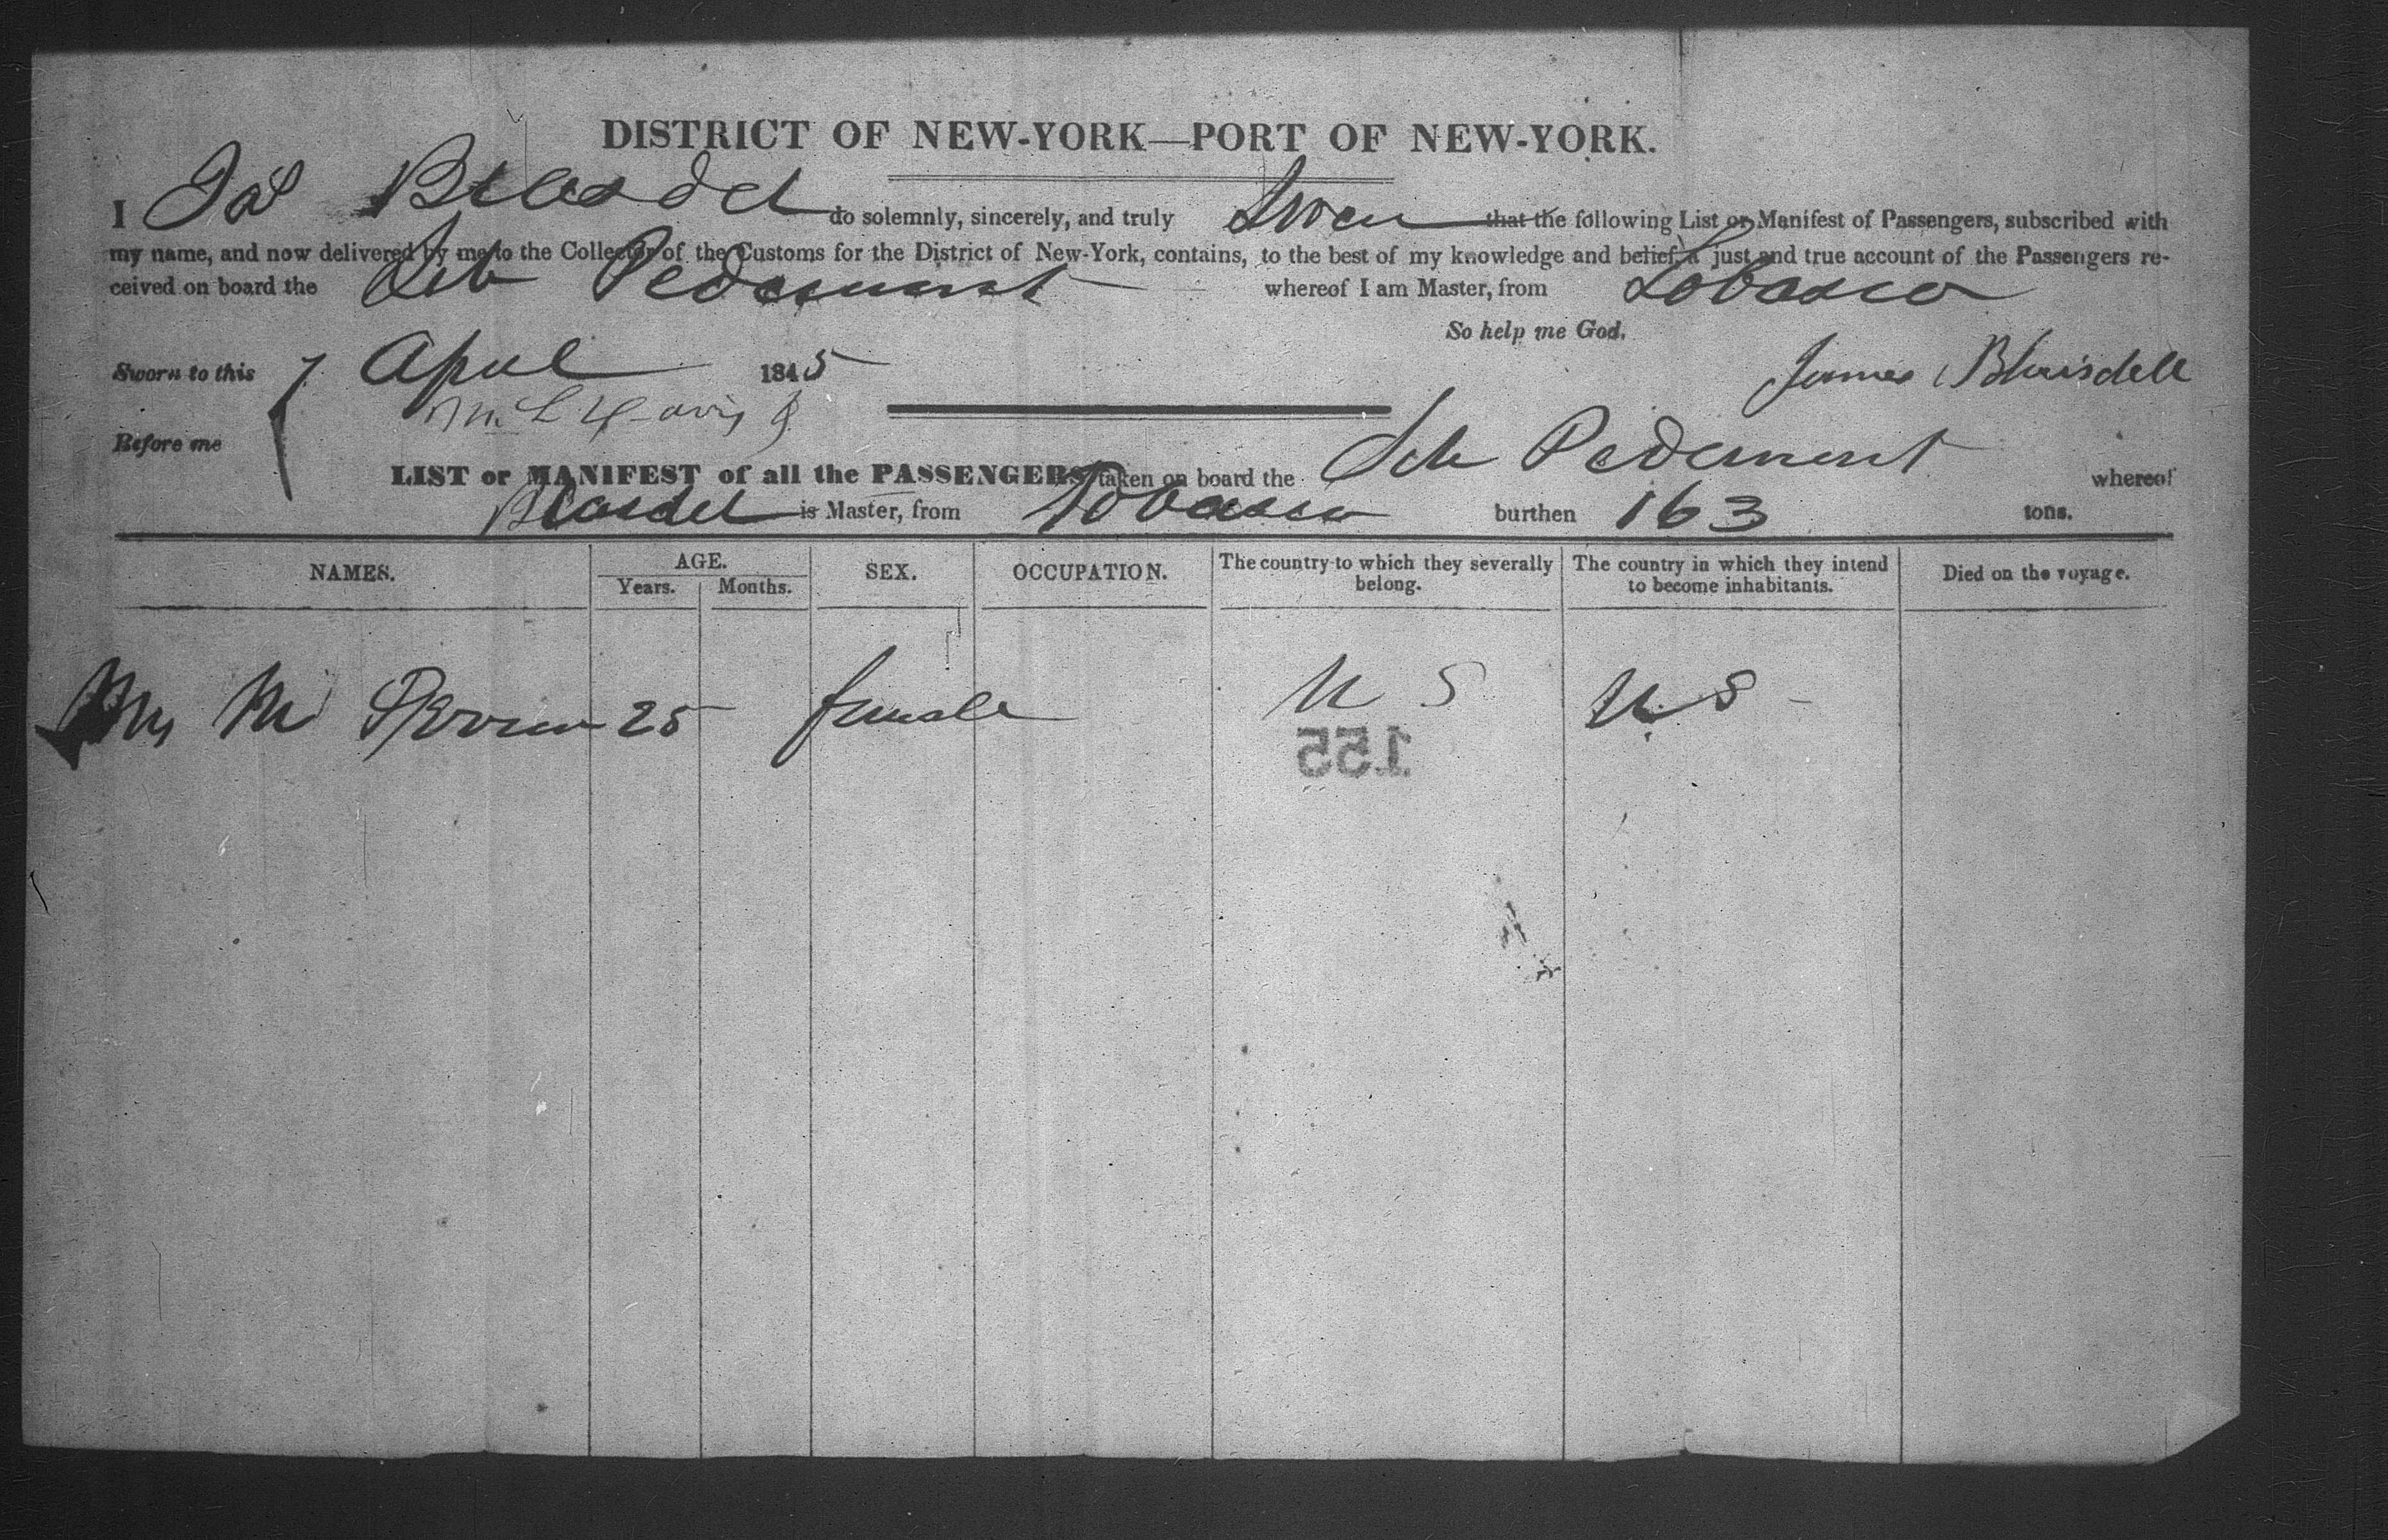 DISTRICT OF NEW-YORK—PORT OF NEW-YORK.
I Jas Blasdel do solemnly, sincerely, and truly Swear that the following List or Manifest of Passengers, subscribed with
my name, and now delivered by me to the Collector of the Customs for the District of New-York, contains, to the best of my knowledge and belief, a just and true account of the Passengers re-
ceived on board the Sch Pedemont whereof I am Master, from Tobasco
So help me God.
Sworn to this 7 April 1845
James Blaisdell
Before me
LIST or MANIFEST of all the PASSENGERS taken on board the Sch Pedemont whereof
Blasdel is Master, from Tobasco burthen 163 tons.
NAMES. AGE. Years. Months. SEX. OCCUPATION. The country to which they severally belong. The country in which they intend to become inhabitants. Died on the voyage.
Mrs M Brown 25 female U S U S -
155